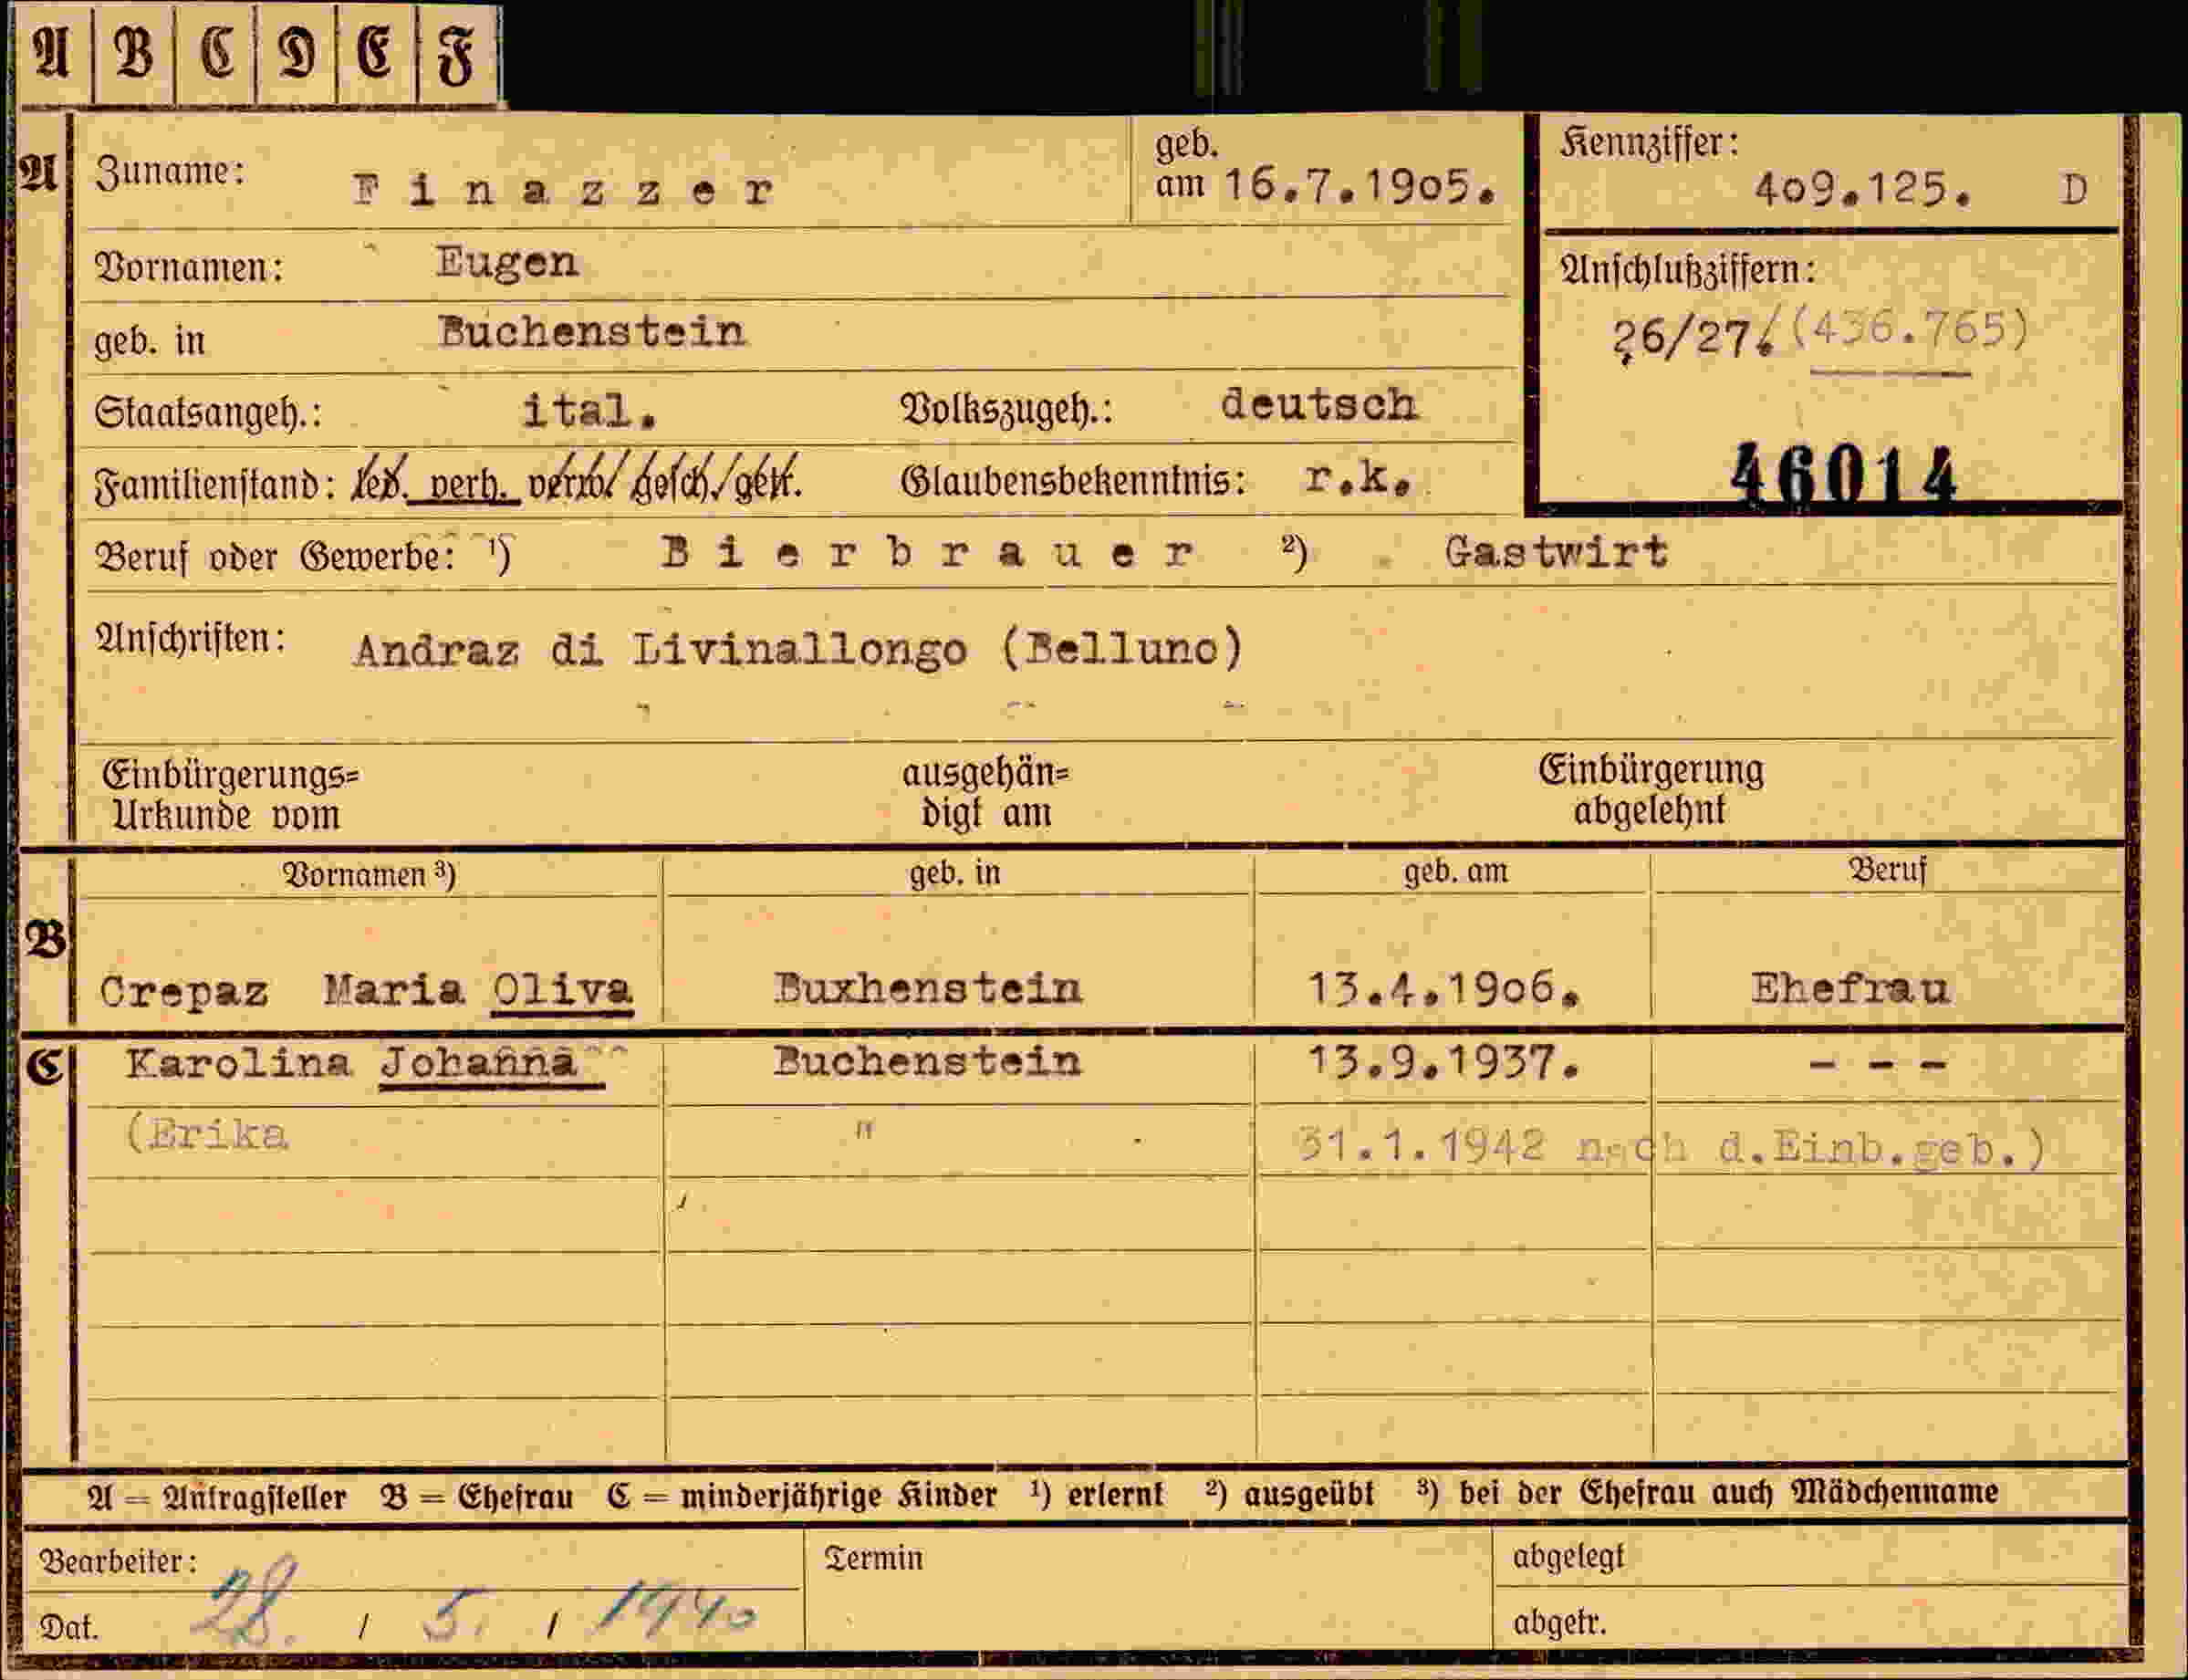 A B C D E F
A Zuname: Finazzer geb. am 16.7.19o5. Kennziffer: 4o9.125. D
Vornamen: Eugen
geb. in Buchenstein Anschlußziffern: 26/27.(436.765)
Staatsangeh.: ital. Volkszugeh.: deutsch
Familienstand: led. verh. verw. gesch./getr. Glaubensbekenntnis: r.k. 46014
Beruf oder Gewerbe: ¹) Bierbrauer ²) Gastwirt
Anschriften: Andraz di Livinallongo (Belluno)
Einbürgerungs= ausgehän= Einbürgerung
Urkunde vom digt am abgelehnt
Vornamen ³) geb. in geb. am Beruf
B Crepaz Maria Oliva Buxhenstein 13.4.19o6. Ehefrau
C Karolina Johanna Buchenstein 13.9.1937. - - -
(Erika " 31.1.1942 nach d.Einb.geb.)
A = Antragsteller B = Ehefrau C = minderjährige Kinder ¹) erlernt ²) ausgeübt ³) bei der Ehefrau auch Mädchenname
Bearbeiter: Termin abgelegt
Dat. 28. / 5. / 1940 abgetr.